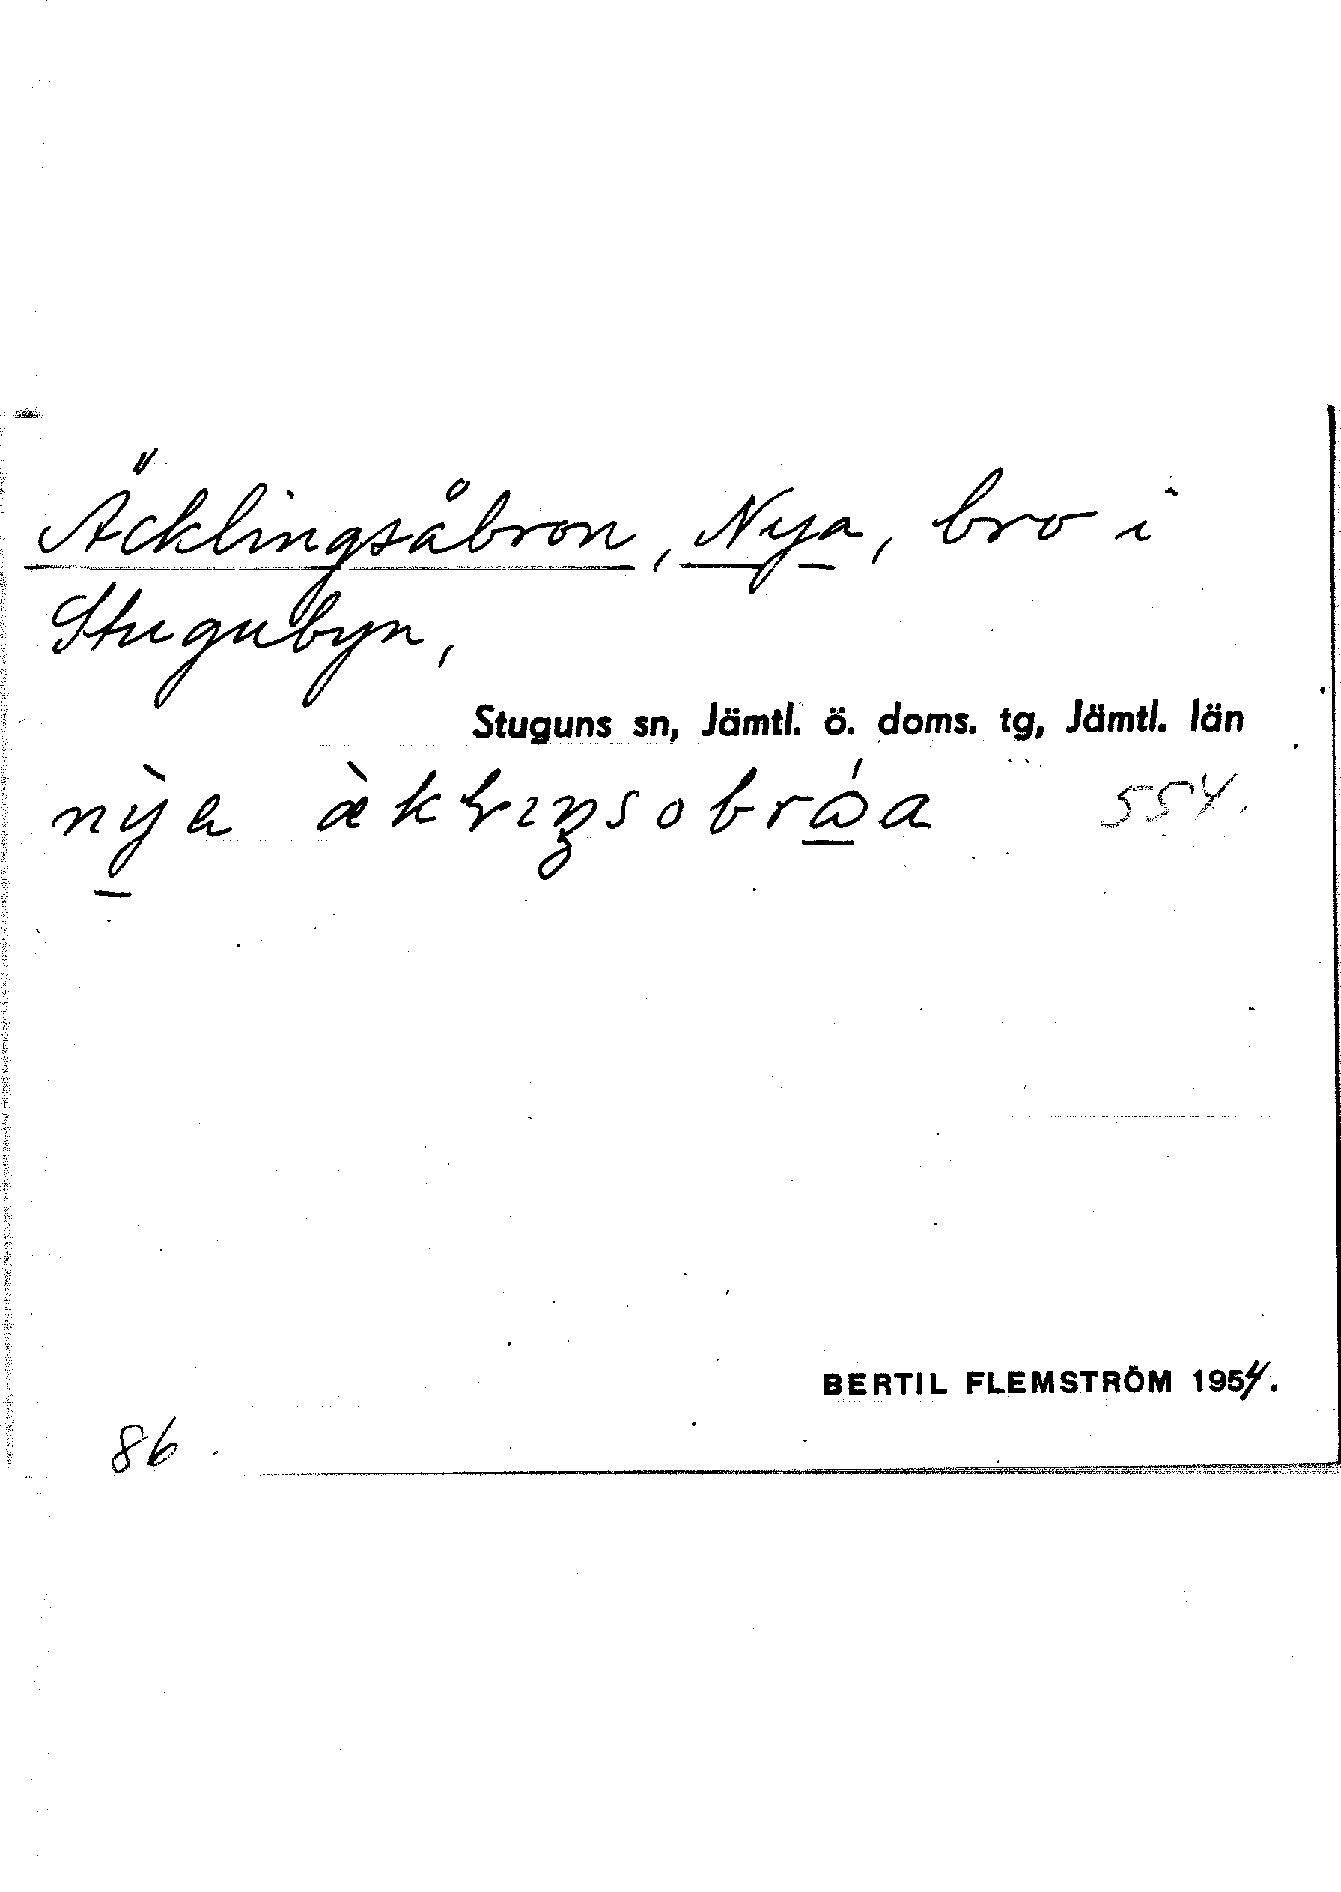 Äcklingsåbron, Nya, bro i
Stugubyn,
Stuguns sn, Jämtl. ö. doms. tg, Jämtl. län
554.
BERTIL FLEMSTRÖM 1954.
86